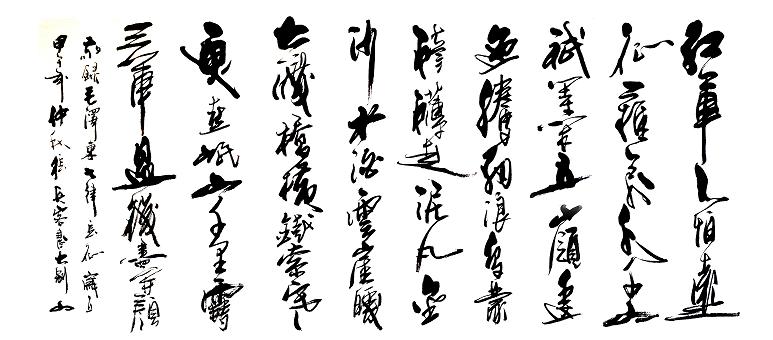 紅軍不怕遠
征難萬水千山
祇等閒五嶺逶
迤騰細浪烏蒙
磅礴走泥丸金
沙水拍雲崖暖
大渡橋橫鐵索寒
更喜岷山千里雪
三軍過後盡開顏
敬錄毛澤東七律長征
甲午年仲秋大別山